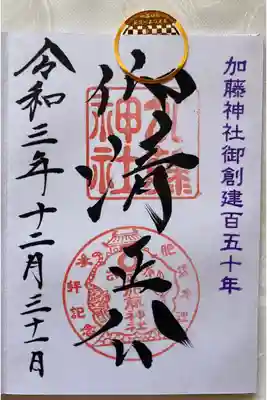 加藤神社御創建百五十年
仰清正公
加藤神社
令和三年十二月三十一日